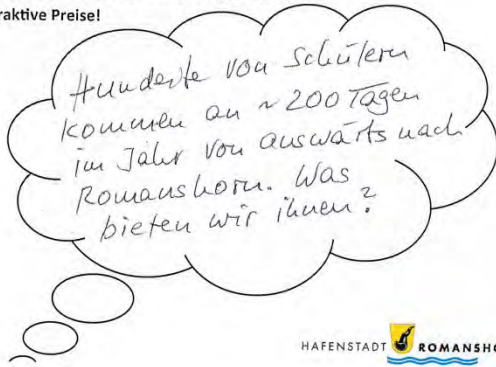 raktive Preise!
Hunderte von Schülern
kommen an ~ 200 Tagen
im Jahr von auswärts nach
Romanshorn. Was
bieten wir ihnen?
HAFENSTADT ROMANSHO